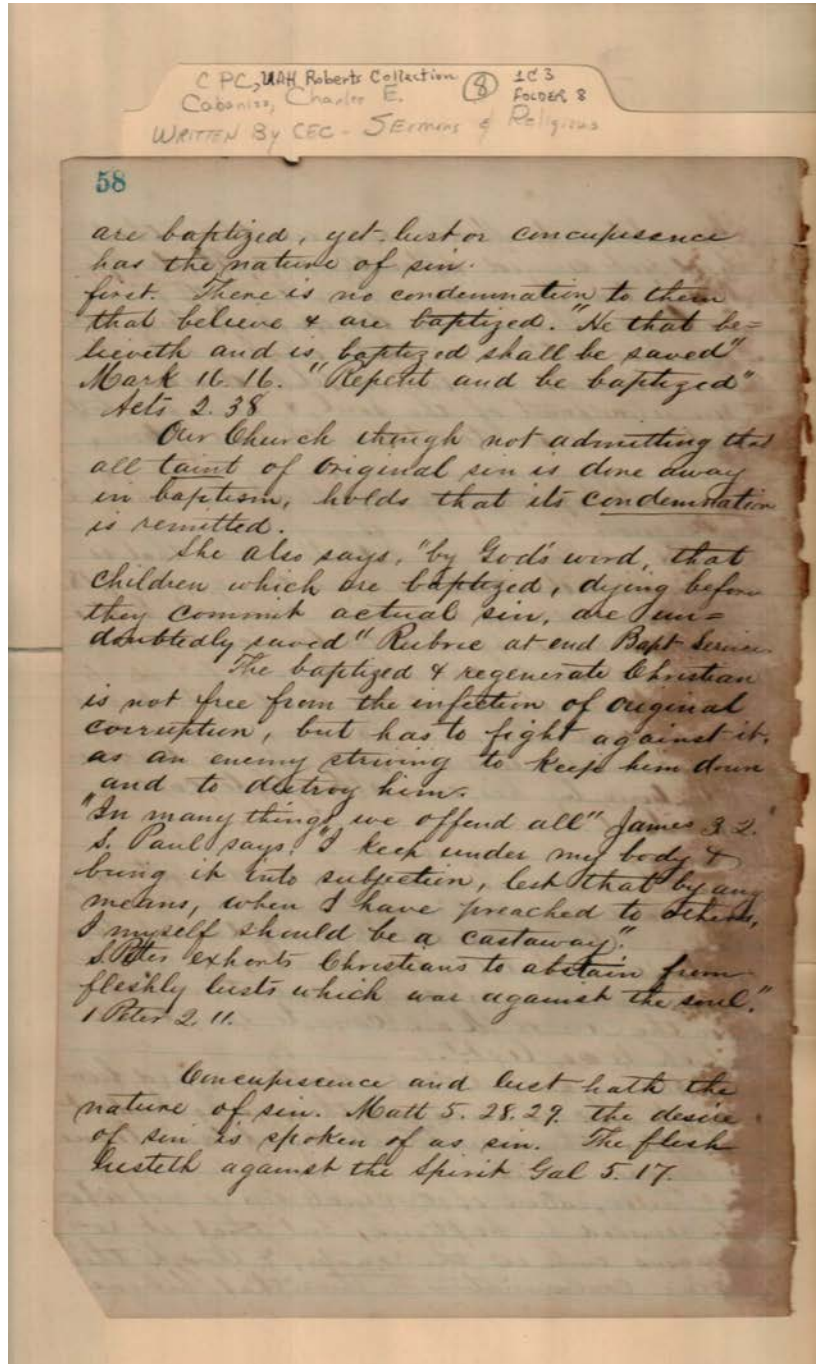 C PC, UAH Roberts Collection ⑧ 1C3
Cabaniss, Charles E. FOLDER 8
WRITTEN BY CEC - SErmons & Religious
58
are baptized, yet lust or concupisence
has the nature of sin.
first. There is no condemnation to them
that believe & are baptized. "He that be=
lieveth and is baptized shall be saved"
Mark 16.16. "Repent and be baptized"
Acts 2.38
Our Church though not admitting that
all taint of Original sin is done away
in baptism, holds that its condemnation
is remitted.
She also says, "by God's word, that
children which are baptized, dying before
they commit actual sin, are un=
doubtedly saved" Rubric at end Bapt Service
The baptized & regenerate Christian
is not free from the infection of original
corruption, but has to fight against it,
as an enemy striving to keep him down
and to destroy him.
"In many things we offend all" James 3.2.
S. Paul says, "I keep under my body &
bring it into subjection, lest that by any
means, when I have preached to others,
I myself should be a castaway."
S. Peter exhorts Christians to abstain from
fleshly lusts which war against the soul."
1 Peter 2.11.
Concupiscence and lust hath the
nature of sin. Matt 5.28.29. the desire
of sin is spoken of as sin. The flesh
lusteth against the Spirit Gal 5.17.